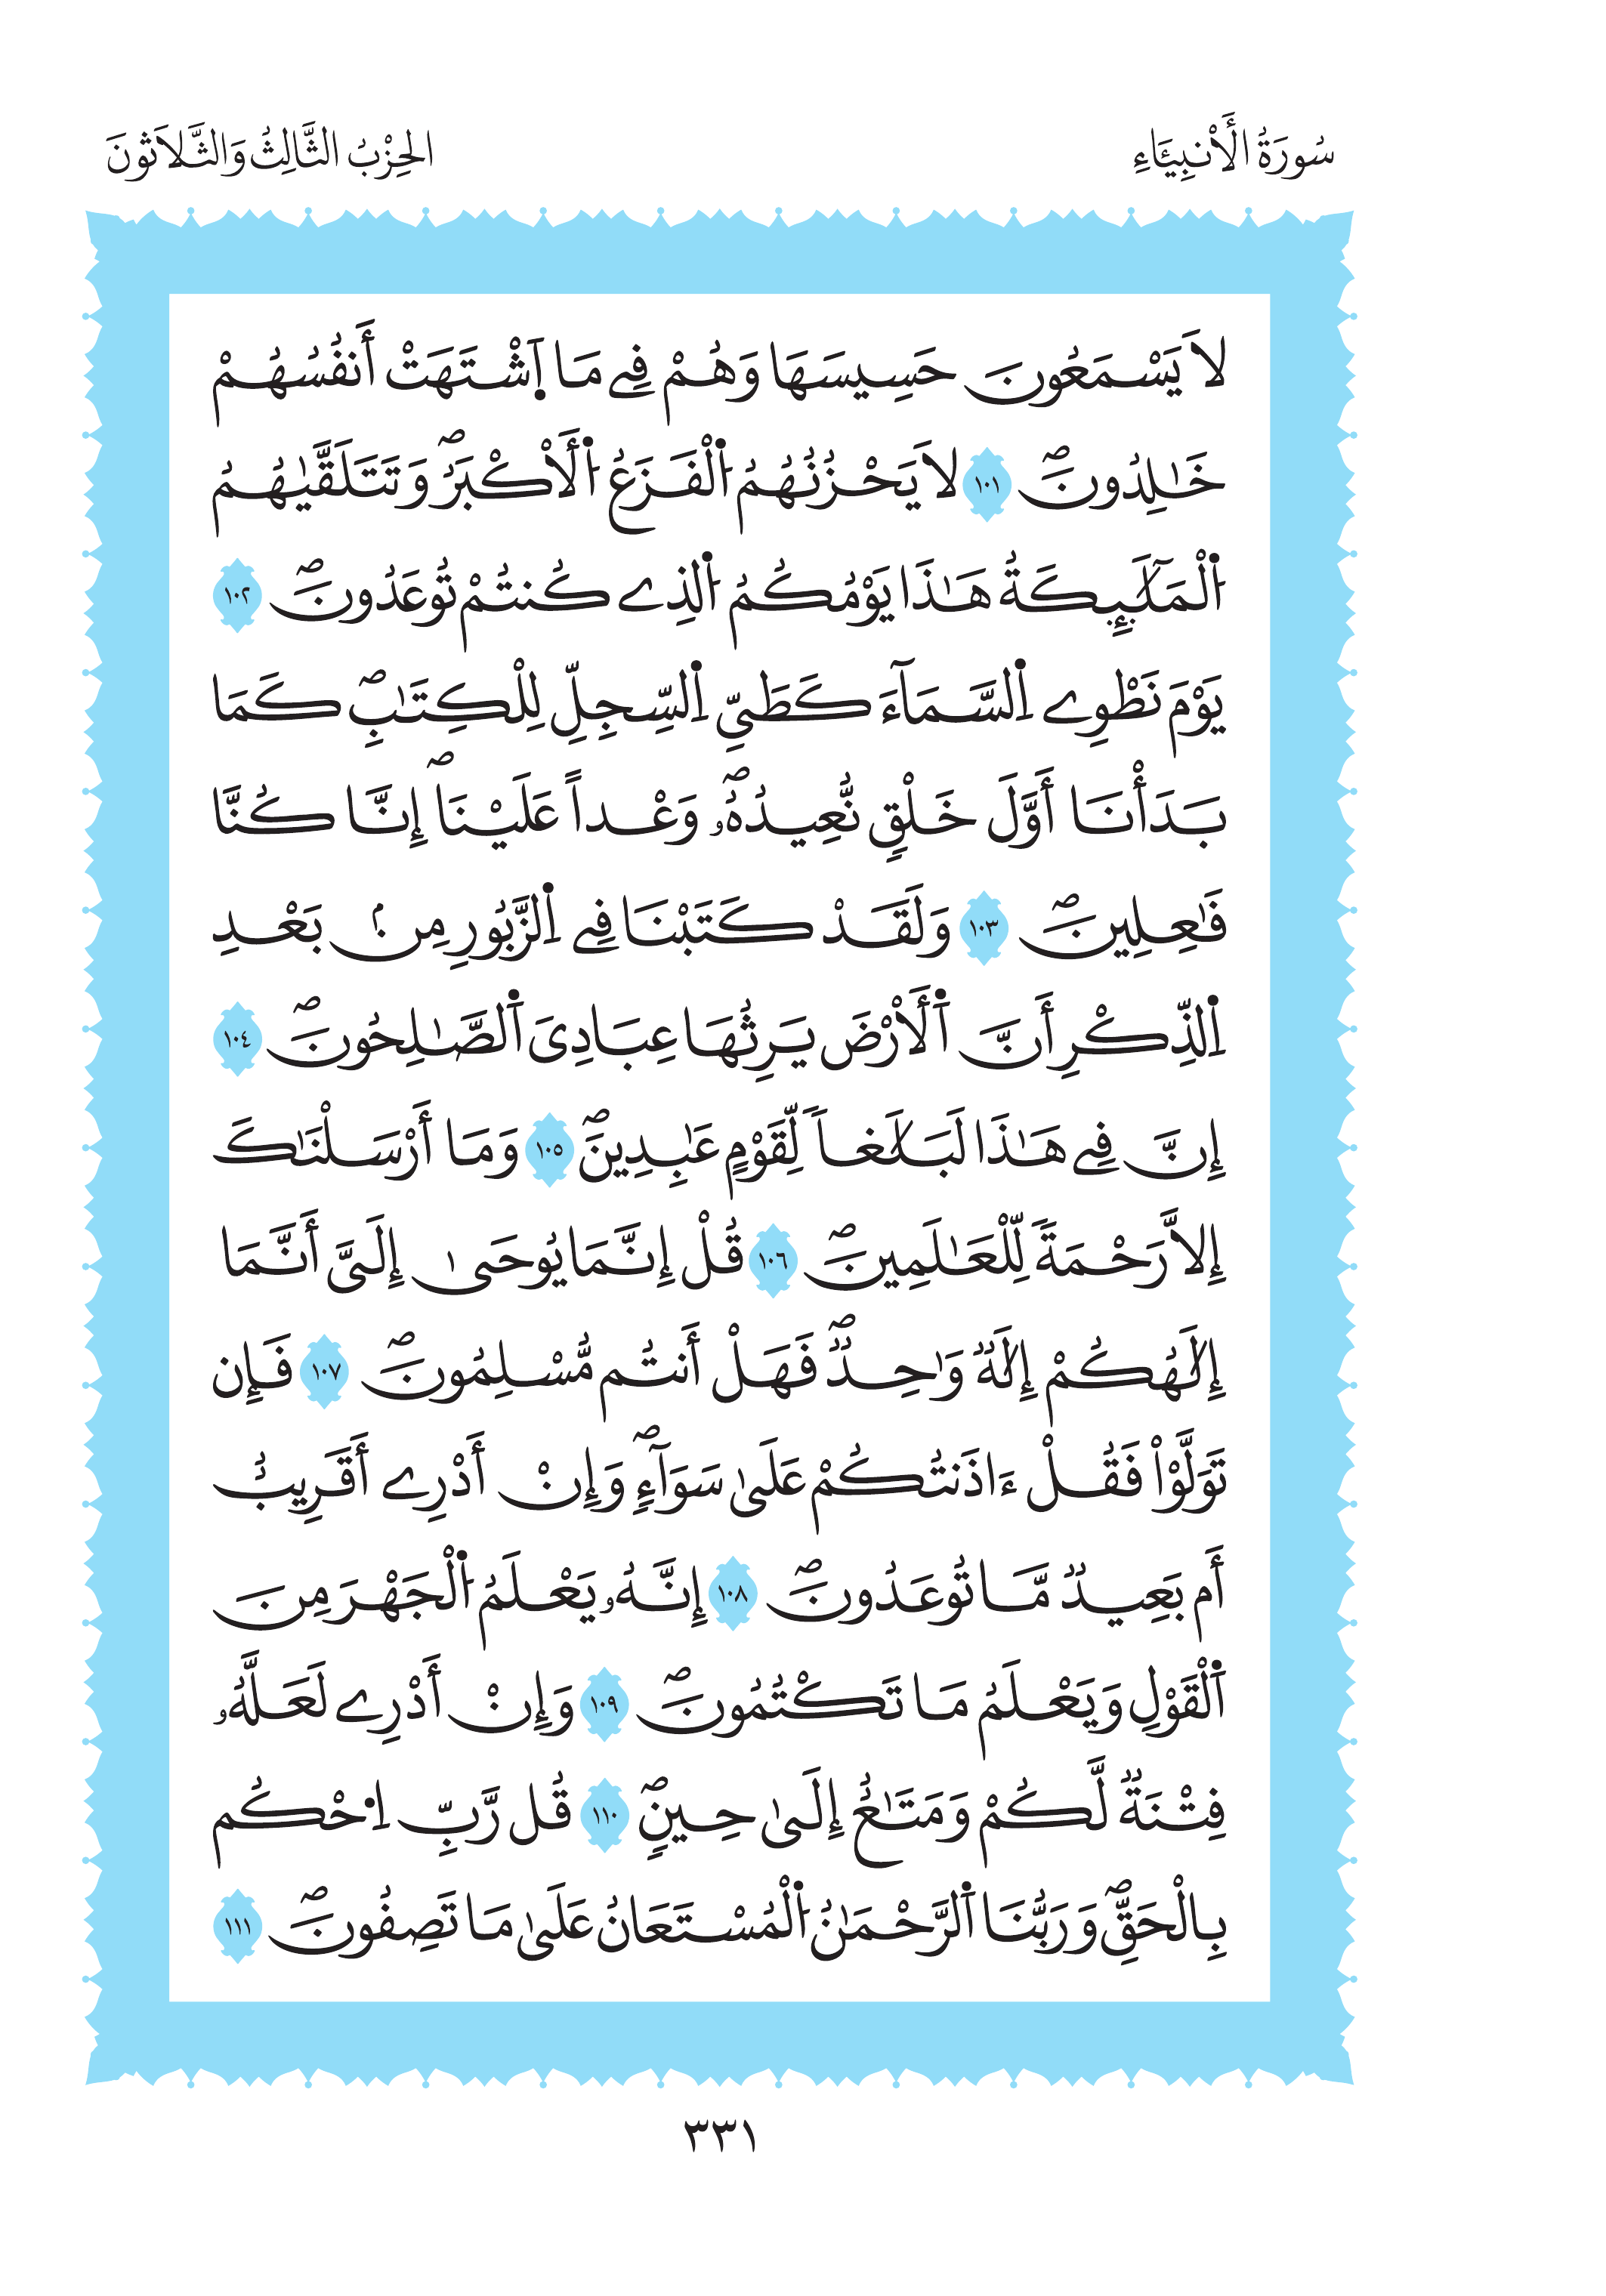 سُورَةُ الْأَنبِيَاءِ
الحِزْبُ الثَّالِثُ وَالثَّلَاثُونَ
لَا يَسْمَعُونَ حَسِيسَهَا وَهُمْ فِے مَا اَ۪شْتَهَتْ أَنفُسُهُمْ
خَٰلِدُونَۖ ١٠١ لَا يَحْزُنُهُمُ اُ۬لْفَزَعُ اُ۬لَأكْبَرُۖ وَتَتَلَقَّيٰهُمُ
اُ۬لْمَلَٰٓئِكَةُ هَٰذَا يَوْمُكُمُ اُ۬لذِے كُنتُمْ تُوعَدُونَۖ ١٠٢
يَوْمَ نَطْوِے اِ۬لسَّمَآءَ كَطَيِّ اِ۬لسِّجِلِّ لِلْكِتَٰبِۖ كَمَا
بَدَأْنَا أَوَّلَ خَلْقٖ نُّعِيدُهُۥۖ وَعْداً عَلَيْنَاۖ إِنَّا كُنَّا
فَٰعِلِينَۖ ١٠٣ وَلَقَدْ كَتَبْنَا فِے اِ۬لزَّبُورِ مِنۢ بَعْدِ
اِ۬لذِّكْرِ أَنَّ اَ۬لَأرْضَ يَرِثُهَا عِبَادِيَ اَ۬لصَّٰلِحُونَۖ ١٠٤
إِنَّ فِے هَٰذَا لَبَلَٰغاٗ لِّقَوْمٍ عَٰبِدِينَۖ ١٠٥ وَمَا أَرْسَلْنَٰكَ
إِلَّا رَحْمَةٗ لِّلْعَٰلَمِينَۖ ١٠٦ قُلْ إِنَّمَا يُوحَىٰ إِلَيَّ أَنَّمَا
إِلَٰهُكُمْ إِلَٰهٞ وَٰحِدٞۖ فَهَلْ أَنتُم مُّسْلِمُونَۖ ١٠٧ فَإِن
تَوَلَّوْاْ فَقُلْ ءَاذَنتُكُمْ عَلَىٰ سَوَآءٖۖ وَإِنْ أَدْرِے أَقَرِيبٌ
أَم بَعِيدٞ مَّا تُوعَدُونَۖ ١٠٨ إِنَّهُۥ يَعْلَمُ اُ۬لْجَهْرَ مِنَ
اَ۬لْقَوْلِ وَيَعْلَمُ مَا تَكْتُمُونَۖ ١٠٩ وَإِنْ أَدْرِے لَعَلَّهُۥ
فِتْنَةٞ لَّكُمْ وَمَتَٰعٌ إِلَىٰ حِينٖۖ ١١٠ قُل رَّبِّ اِ۟حْكُم
بِالْحَقِّۖ وَرَبُّنَا اَ۬لرَّحْمَٰنُ اُ۬لْمُسْتَعَانُ عَلَىٰ مَا تَصِفُونَۖ ١١١
٣٣١